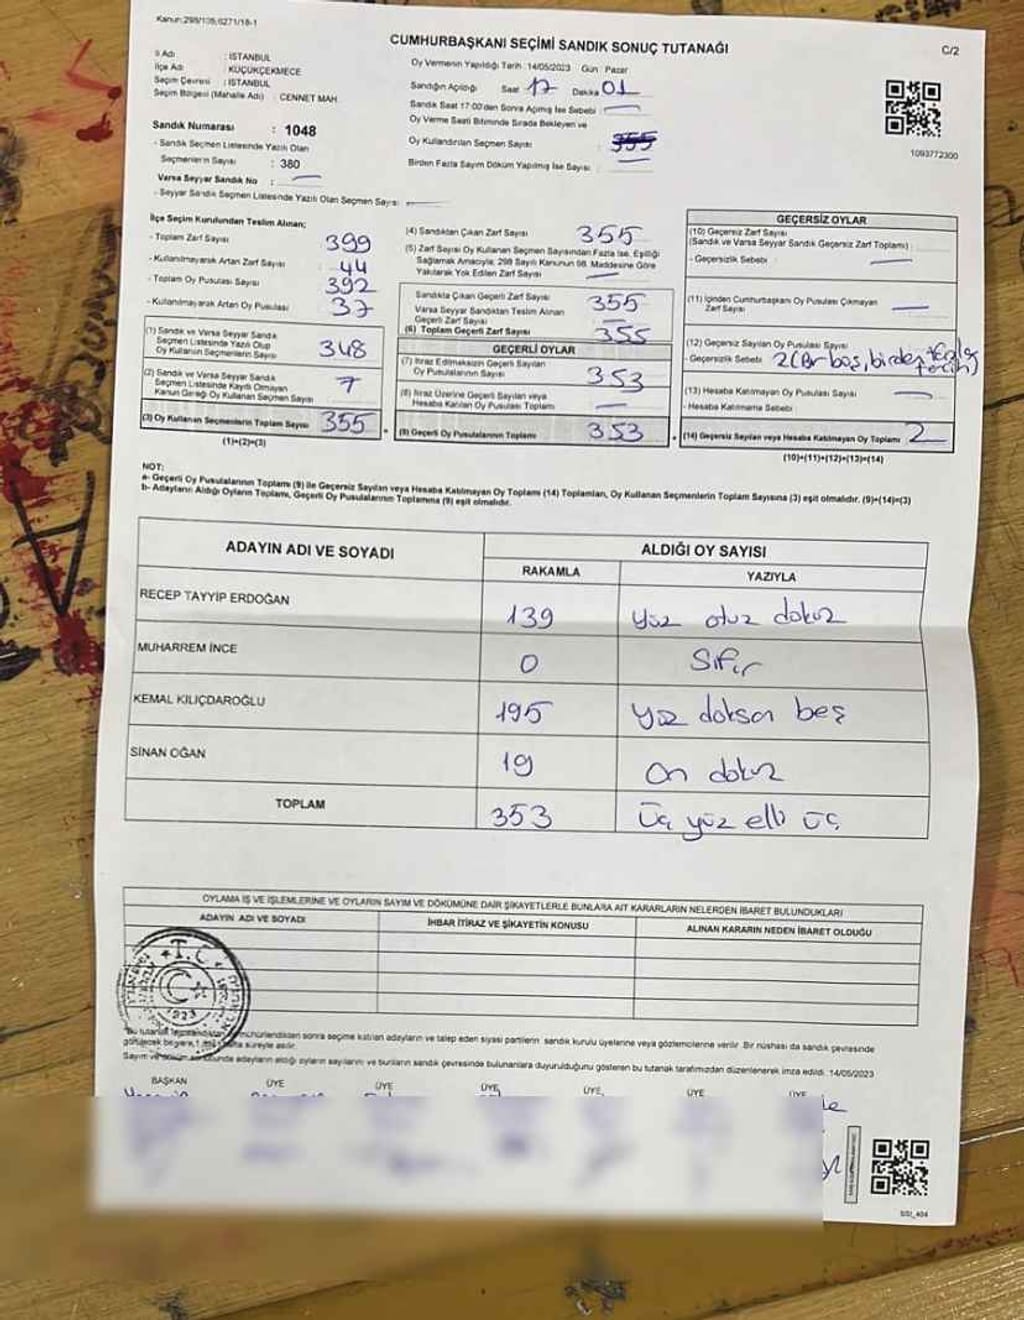 Kanun:298/105,6271/18-1
CUMHURBAŞKANI SEÇİMİ SANDIK SONUÇ TUTANAĞI
C/2
İl Adı : İSTANBUL
İlçe Adı : KÜÇÜKÇEKMECE
Seçim Çevresi : İSTANBUL
Seçim Bölgesi (Mahalle Adı) : CENNET MAH.
Sandık Numarası : 1048
- Sandık Seçmen Listesinde Yazılı Olan
Seçmenlerin Sayısı : 380
Varsa Seyyar Sandık No : —
- Seyyar Sandık Seçmen Listesinde Yazılı Olan Seçmen Sayısı: —
Oy Vermenin Yapıldığı Tarih :14/05/2023 Gün : Pazar
Sandığın Açıldığı Saat 17 Dakika 01
Sandık Saat 17:00'den Sonra Açılmış İse Sebebi : —
Oy Verme Saati Bitiminde Sırada Bekleyen ve
Oy Kullandırılan Seçmen Sayısı :
Birden Fazla Sayım Döküm Yapılmış İse Sayısı : —
1093772300
İlçe Seçim Kurulundan Teslim Alınan;
- Toplam Zarf Sayısı 399
- Kullanılmayarak Artan Zarf Sayısı 44
- Toplam Oy Pusulası Sayısı 392
- Kullanılmayarak Artan Oy Pusulası 37
(1) Sandık ve Varsa Seyyar Sandık
Seçmen Listesinde Yazılı Olup
Oy Kullanan Seçmenlerin Sayısı 348
(2) Sandık ve Varsa Seyyar Sandık
Seçmen Listesinde Kayıtlı Olmayan
Kanun Gereği Oy Kullanan Seçmen Sayısı 7
(3) Oy Kullanan Seçmenlerin Toplam Sayısı 355
(1)+(2)=(3)
(4) Sandıktan Çıkan Zarf Sayısı 355
(5) Zarf Sayısı Oy Kullanan Seçmen Sayısından Fazla İse, Eşitliği
Sağlamak Amacıyla, 298 Sayılı Kanunun 98. Maddesine Göre
Yakılarak Yok Edilen Zarf Sayısı —
Sandıkta Çıkan Geçerli Zarf Sayısı 355
Varsa Seyyar Sandıktan Teslim Alınan
Geçerli Zarf Sayısı —
(6) Toplam Geçerli Zarf Sayısı 355
GEÇERLİ OYLAR
(7) İtiraz Edilmeksizin Geçerli Sayılan
Oy Pusulalarının Sayısı 353
(8) İtiraz Üzerine Geçerli Sayılan veya
Hesaba Katılan Oy Pusulaları Toplamı —
(9) Geçerli Oy Pusulalarının Toplamı 353
GEÇERSİZ OYLAR
(10) Geçersiz Zarf Sayısı
(Sandık ve Varsa Seyyar Sandık Geçersiz Zarf Toplamı) :
- Geçersizlik Sebebi : —
(11) İçinden Cumhurbaşkanı Oy Pusulası Çıkmayan
Zarf Sayısı : —
(12) Geçersiz Sayılan Oy Pusulası Sayısı
- Geçersizlik Sebebi 2 (Bir boş, birden fazla tercih)
(13) Hesaba Katılmayan Oy Pusulası Sayısı : —
- Hesaba Katılmama Sebebi
(14) Geçersiz Sayılan veya Hesaba Katılmayan Oy Toplamı 2
(10)+(11)+(12)+(13)=(14)
NOT:
a- Geçerli Oy Pusulalarının Toplamı (9) ile Geçersiz Sayılan veya Hesaba Katılmayan Oy Toplamı (14) Toplamları, Oy Kullanan Seçmenlerin Toplam Sayısına (3) eşit olmalıdır. (9)+(14)=(3)
b- Adayların Aldığı Oyların Toplamı, Geçerli Oy Pusulalarının Toplamına (9) eşit olmalıdır.
ADAYIN ADI VE SOYADI
ALDIĞI OY SAYISI
RAKAMLA YAZIYLA
RECEP TAYYİP ERDOĞAN 139 yüz otuz dokuz
MUHARREM İNCE 0 Sıfır
KEMAL KILIÇDAROĞLU 195 yüz doksan beş
SİNAN OĞAN 19 on dokuz
TOPLAM 353 Üç yüz elli üç
OYLAMA İŞ VE İŞLEMLERİNE VE OYLARIN SAYIM VE DÖKÜMÜNE DAİR ŞİKAYETLERLE BUNLARA AİT KARARLARIN NELERDEN İBARET BULUNDUKLARI
ADAYIN ADI VE SOYADI İHBAR İTİRAZ VE ŞİKAYETİN KONUSU ALINAN KARARIN NEDEN İBARET OLDUĞU
T.C.
1923
sonra seçime katılan adayların ve talep eden siyasi partilerin sandık kurulu üyelerine veya gözlemcilerine verilir. Bir nüshası da sandık çevresinde
süreyle asılır.
Sayım ve adayların aldığı oyların sayılarını ve bunların sandık çevresinde bulunanlara duyurulduğunu gösteren bu tutanak tarafımızdan düzenlenerek imza edildi. 14/05/2023
BAŞKAN ÜYE ÜYE ÜYE ÜYE ÜYE ÜYE
SSI_404